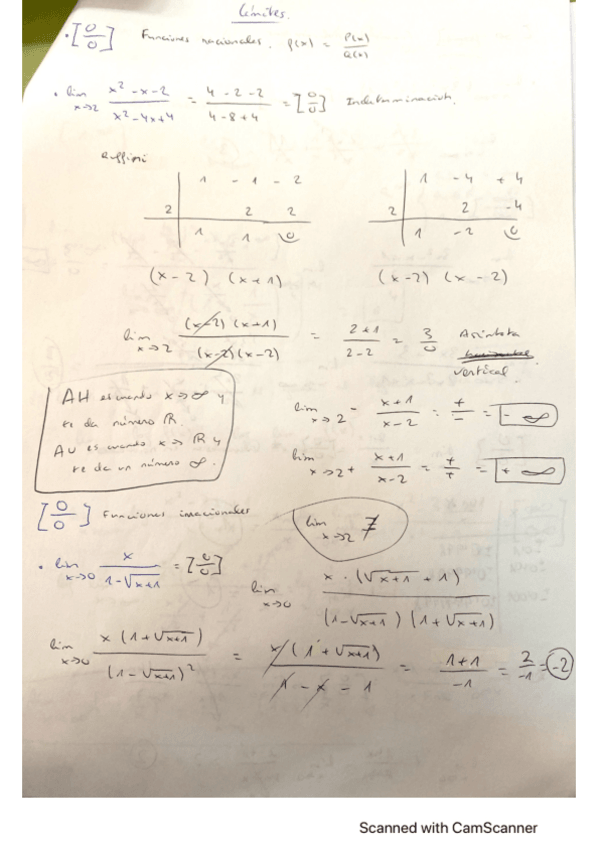 Límites.
· [0/0] Funciones racionales. f(x) = P(x)/Q(x)
· lim x→2 (x² - x - 2)/(x² - 4x + 4) = (4 - 2 - 2)/(4 - 8 + 4) = [0/0] Indeterminación.
Ruffini
1 - 1 - 2
2 | 2 2
1 1 0
1 - 4 + 4
2 | 2 - 4
1 - 2 0
(x - 2) (x + 1)
(x - 2) (x - 2)
lim x→2 (x-2)(x+1)/(x-2)(x-2) = (2+1)/(2-2) = 3/0 Asíntota
vertical.
AH es cuando x→∞ y
te da número R.
AV es cuando x→R y
te da un número ∞.
lim x→2⁻ (x+1)/(x-2) = +/- = - ∞
lim x→2+ (x+1)/(x-2) = +/+ = + ∞
[0/0] Funciones irracionales
lim x→2 ∄
· lim x→0 x/(1-√x+1) = [0/0]
lim x→0 x · (√x+1 + 1)/(1-√x+1)(1+√x+1)
lim x→0 x(1+√x+1)/(1-√x+1)² = x(1+√x+1)/(1-x-1) = (1+1)/-1 = 2/-1 = -2
Scanned with CamScanner